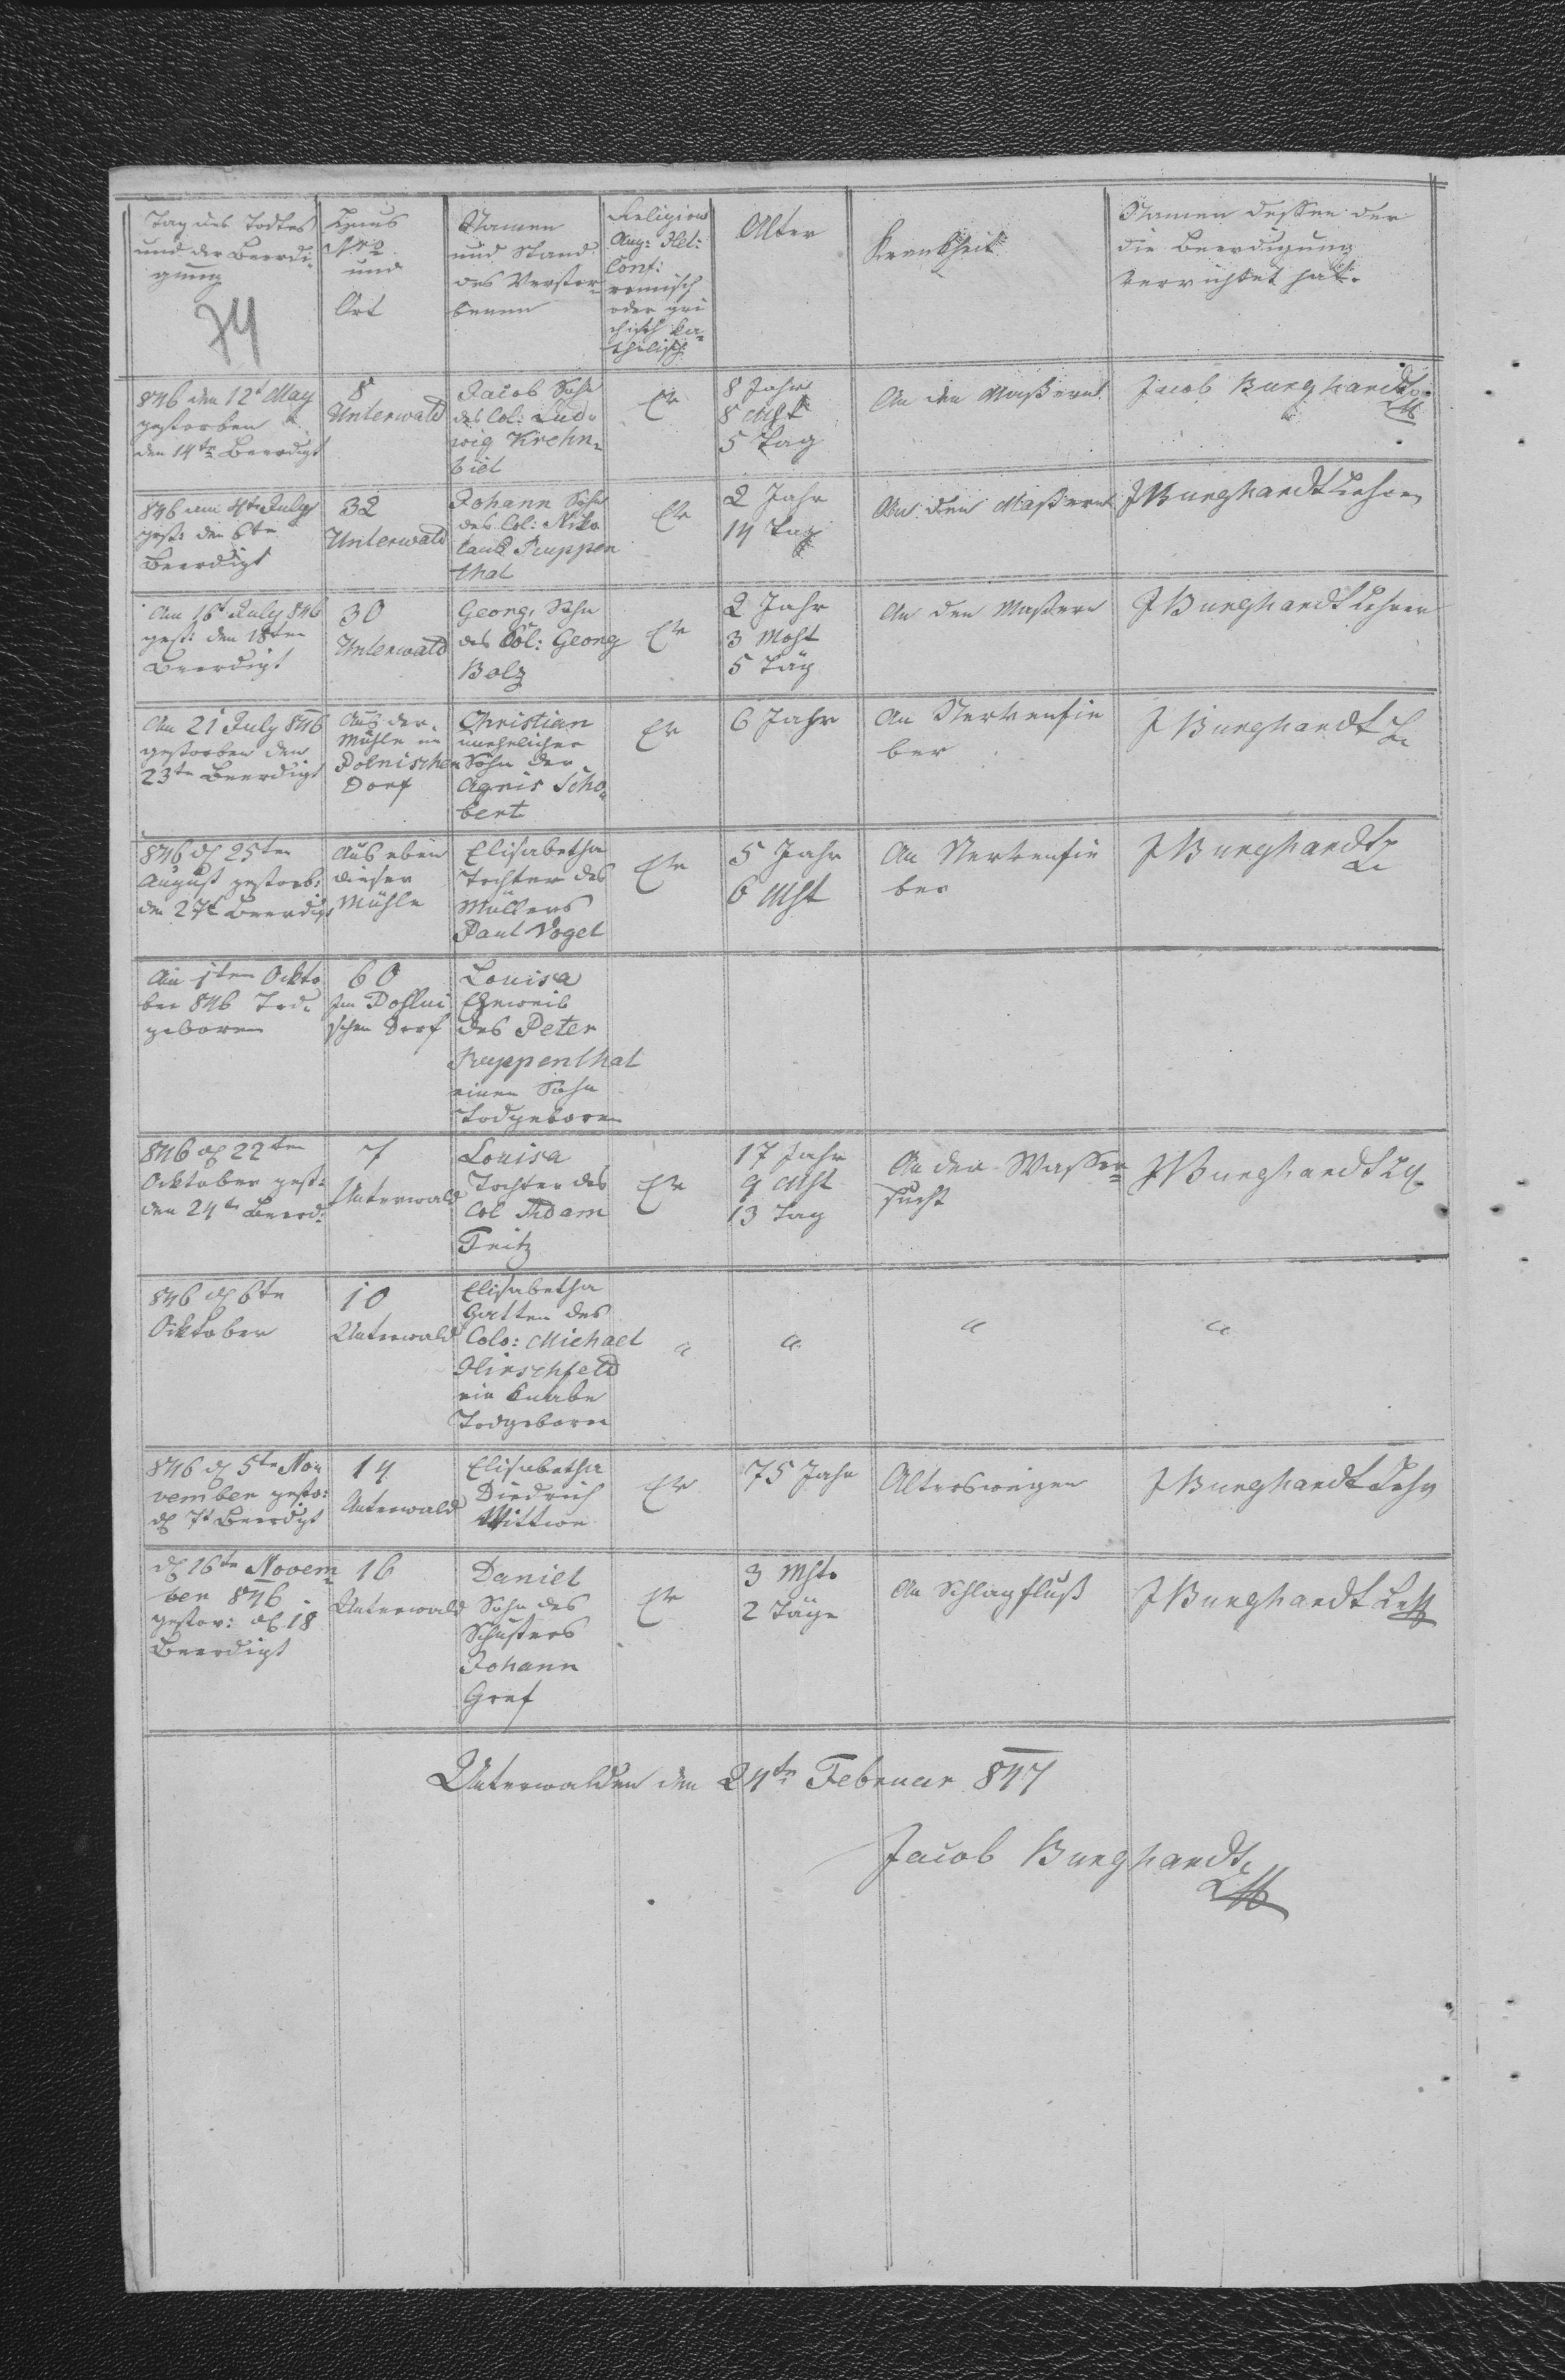 Tag des Todtes
und der Beerdi-
gung
74
Haus
Nro
und
Ort
Namen
und Stand
des Verstor-
benen
Religion
Aug: Hel:
Conf:
römisch
oder gri
chisch ka-
tholisch
Alter
Krankheit
Namen dessen der
die Beerdigung
verrichtet hat.
846 den 12t May
gestorben
den 14te Beerdigt
8
Unterwald
Jacob Sohn
des Col: Lud-
wig Krehn-
biel
Ev
8 Jahr
8 Mht
5 Tag
An den Maßern
Jacob Burghardt
846 am 4te July
gest: den 6te
Beerdigt
32
Unterwald
Johann Sohn
des Col: Niko
laus Ruppen
thal
Ev
2 Jahr
14 Tag
An den Maßern
J Burghardt Lehrer
Am 16t July 846
gest: den 18ten
Beerdigt
30
Unterwald
Georg, Sohn
des Col: Georg
Bolz
Ev
2 Jahr
3 Moht
5 Täg
An den Maßern
J Burghardt Lehrer
Am 21t July 846
gestorben den
23te Beerdigt
Aus der
Mühle im
Polnischen
Dorf
Christian
unehelicher
Sohn der
Agnis Scho-
bert
Ev
6 Jahr
An Nervenfie
ber
J Burghardt L
846 d 25ten
August gestorb:
den 27t Beerdigt
Aus eben
dieser
Mühle
Elisabetha
Tochter des
Müllers
Paul Vogel
Ev
5 Jahr
6 Mht
An Nervenfie
ber
J Burghardt L
Am 1ten Okto
ber 846 Tod-
geboren
60
Im Pohlni
schen Dorf
Louisa
Eheweib
des Peter
Ruppenthal
einen Sohn
Todgeboren
846 d 22ten
Oktober gest:
den 24te Beerd:
7
Unterwald
Louisa
Tochter des
Col Adam
Fritz
Ev
17 Jahr
9 Mht
13 Tag
An der Wasser-
sucht
J Burghardt L
846 d 6te
Oktober
10
Unterwald
Elisabetha
Gatten des
Colo: Michael
Hirschfeld
ein Knabe
Todgeboren
"
"
"
"
846 d 5te No-
vember gesto:
d 7t Beerdigt
14
Unterwald
Elisabetha
Diedrich
Wittwe
Ev
75 Jahr
Alterswegen
J Burghardt Lehr
d 16te Novem-
ber 846
gestor: d 18
Beerdigt
16
Unterwald
Daniel
Sohn des
Schusters
Johann
Graf
Ev
3 Mht.
2 Täge
An Schlagfluß
J Burghardt
Unterwalden den 24te Februar 847
Jacob Burghardt